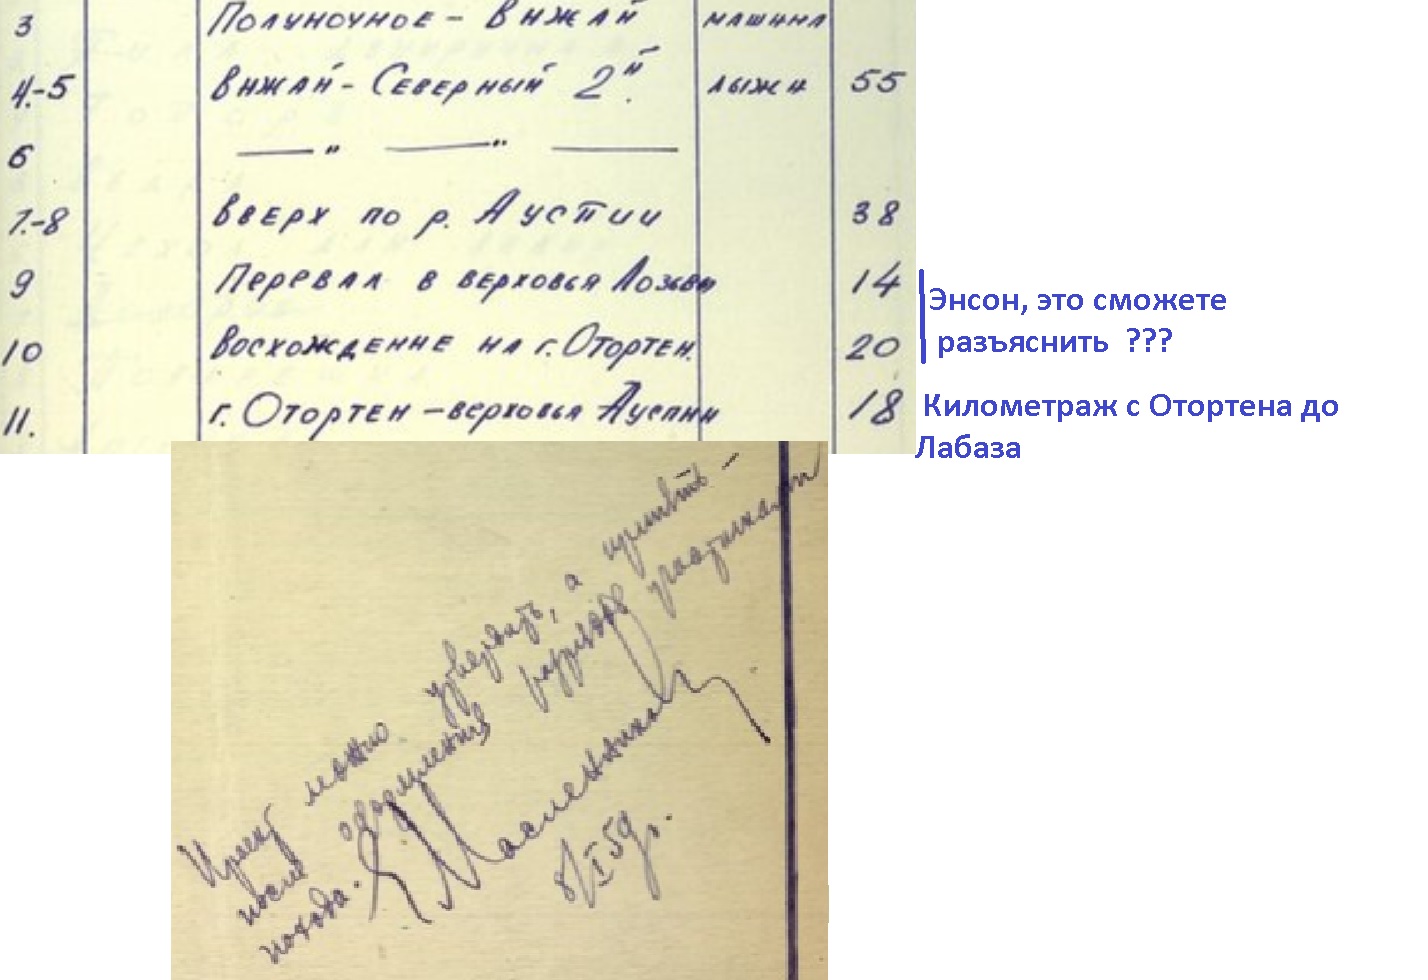 3 Полуночное - Вижай машина
4.-5 Вижай - Северный 2й. лыжи 55
6 — " — " —
7.-8 Вверх по р. Аустии 38
9 Перевал в верховья Лозьвы 14
10 Восхождение на г. Отортен. 20
11. г. Отортен - верховья Ауспии 18
Энсон, это сможете
разъяснить ???
Километраж с Отортена до
Лабаза
Проект можно утвердить, а принять -
после оформления разрядов участникам
похода. Е Масленников
8/I 59г.